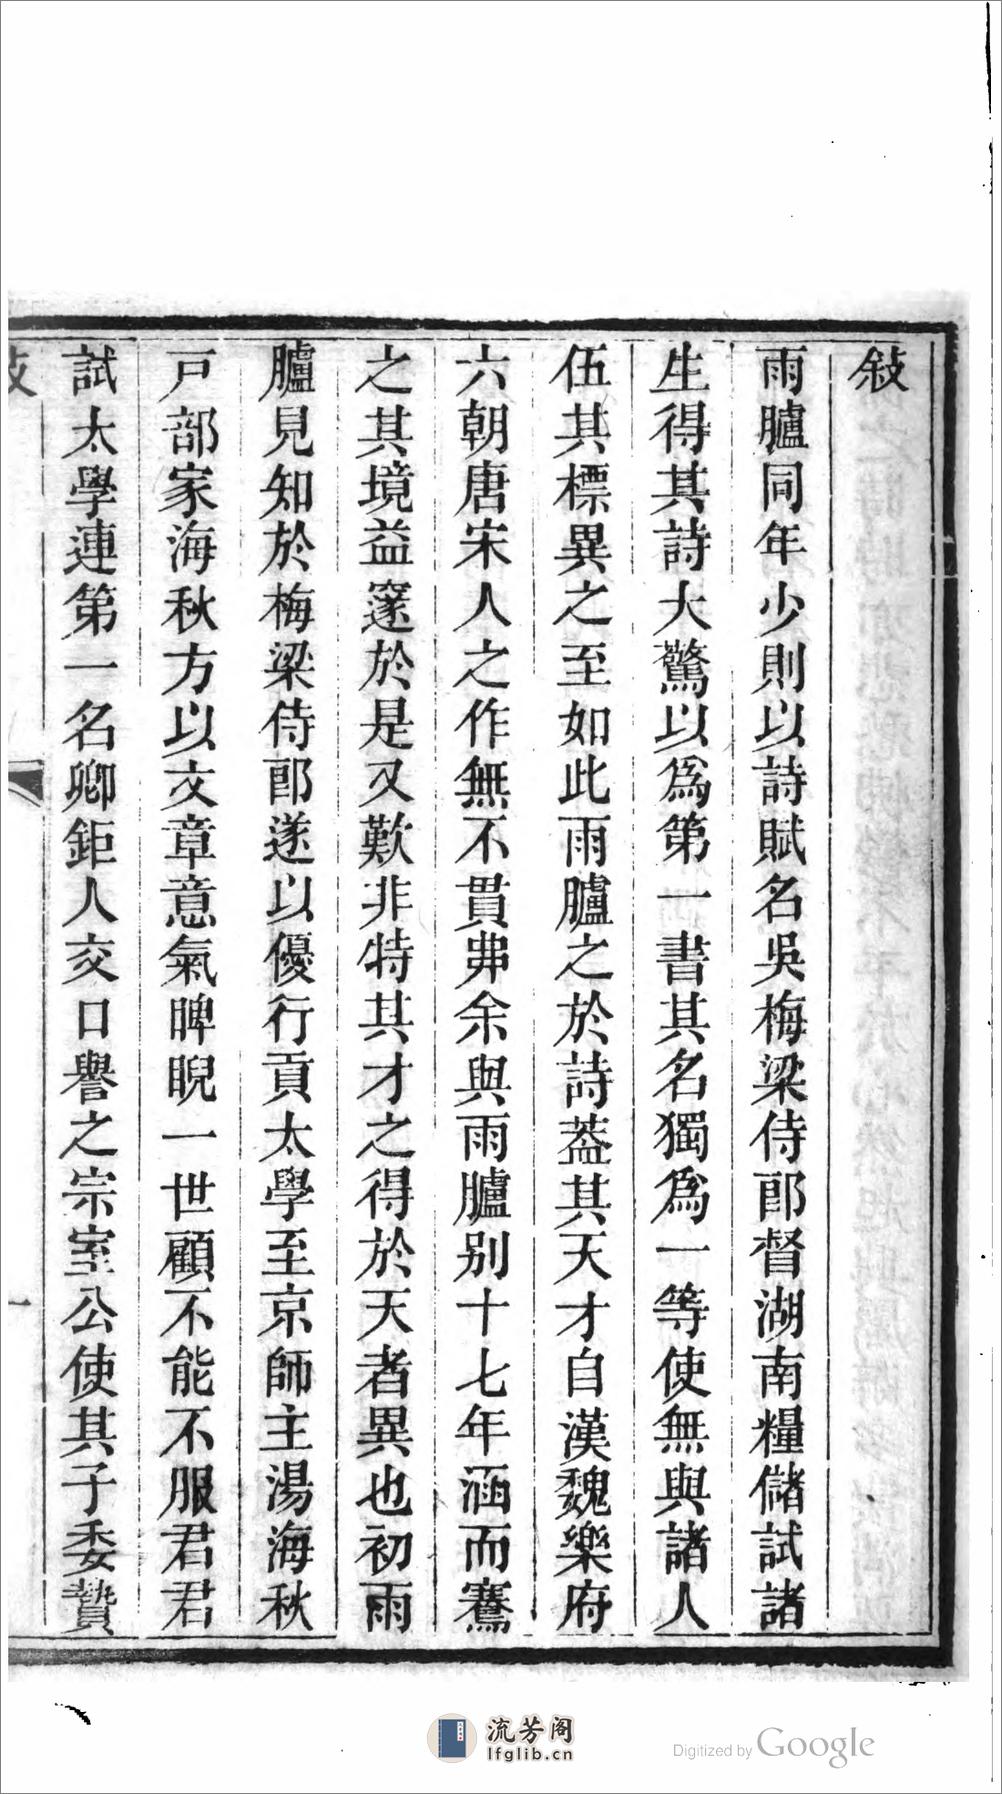 敍
雨臚同年少則以詩賦名吳梅梁侍郎督湖南糧儲試諸
生得其詩大驚以爲第一書其名獨爲一等使無與諸人
伍其標異之至如此雨臚之於詩葢其天才自漢魏樂府
六朝唐宋人之作無不貫弗余與雨臚别十七年涵而騫
之其境益窪於是又歎非特其才之得於天者異也初雨
臚見知於梅梁侍郎遂以優行貢太學至京師主湯海秋
戸部家海秋方以文章意氣睥睨一世顧不能不服君君
試太學連第一名卿鉅人交口譽之宗室公使其子委贄
一
流芳阁
lfglib.cn
Digitized by Google